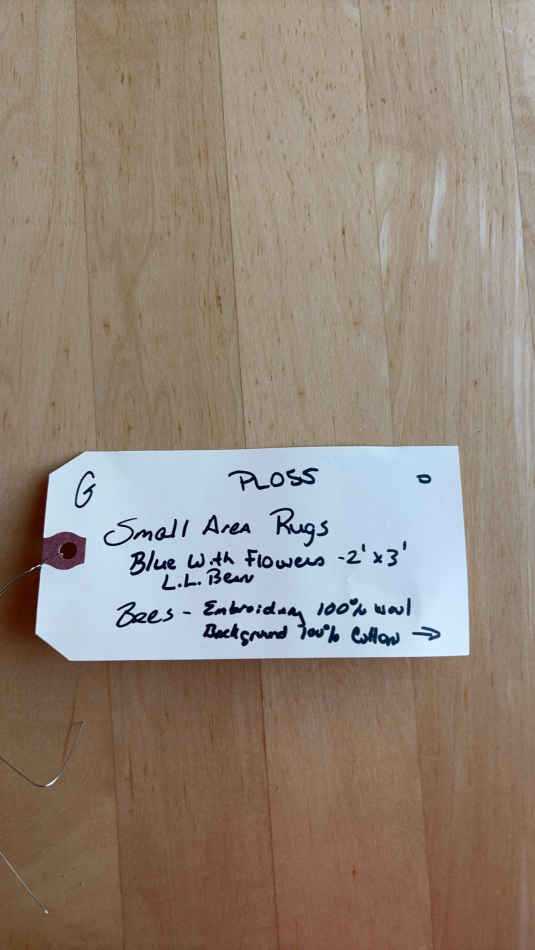 G PLOSS 0
Small Area Rugs
Blue With Flowers - 2' x 3'
L.L. Bean
Bees - Embroidery 100% wool
Background 100% Cotton →